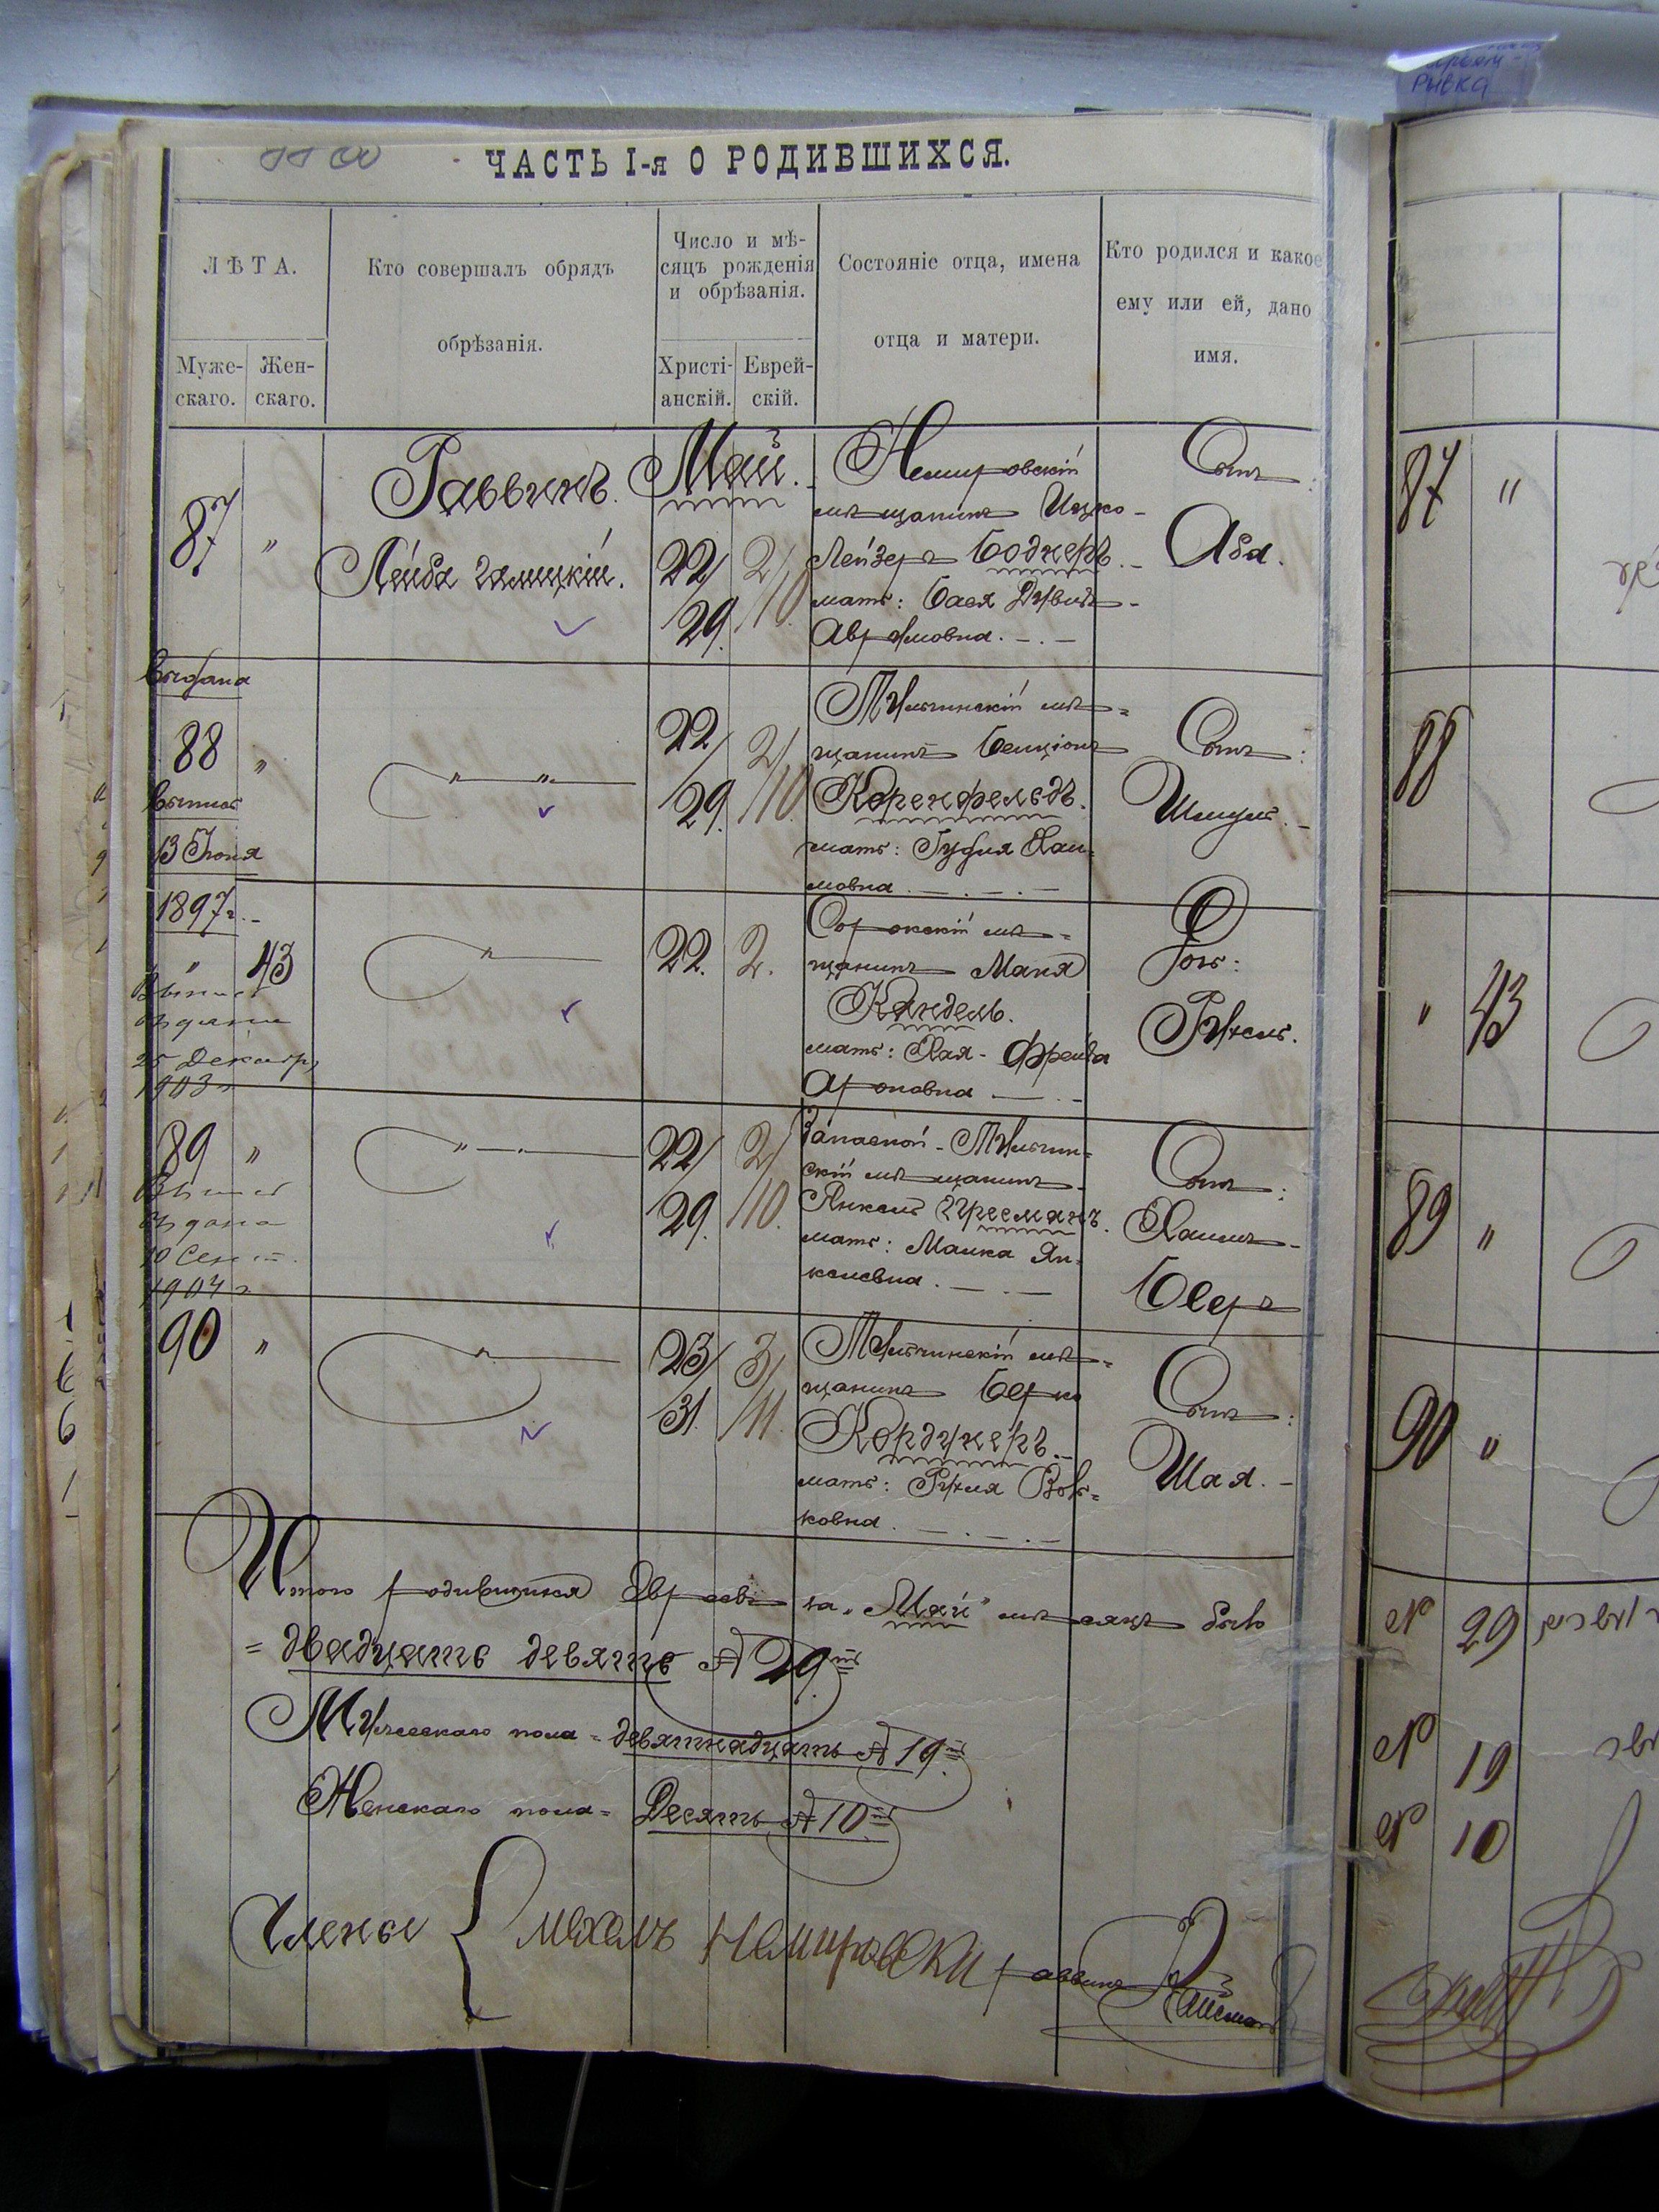 рывка
ЧАСТЬ I-я О РОДИВШИХСЯ.
ЛѢТА.
Муже-
скаго.
Жен-
скаго.
Кто совершалъ обрядъ
обрѣзанія.
Число и мѣ-
сяцъ рожденія
и обрѣзанія.
Христі-
анскій.
Еврей-
скій.
Состояніе отца, имена
отца и матери.
Кто родился и какое
ему или ей, дано
имя.
87 "
Раввинъ.
Лейба Галицкій.
Май.
22/ 2/
29. /10.
Немировскій
мѣщанинъ Ицко-
Лейзеръ Боднеръ. -
мать: Бася Двойра -
Аврумовна. -.-
Сынъ:
Аба.
Выдана
88 "
Выпись
13 Іюня
1897 г. -
22/ 2/
29. /10.
Тульчинскій мѣ=
щанинъ Бенціонъ
Коренфельдъ.
мать: Гудля Хаи=
мовна. -.-.-
Сынъ:
Шмуль. -
" 43
Выпись
выдана
25 Декабря
1903 г
22. 2.
Сорокскій мѣ=
щанинъ Маня
Кандель.
мать: Хая - Фрейда
Ароновна -.-
Дочь:
Рухель.
89 "
Выпись
выдана
10 Сент.
1904 г
22/ 2/
29. /10.
Запасной - Тульчин=
скій мѣщанинъ
Янкель Гресманъ.
мать: Малка Ян=
келевна. -.-
Сынъ:
Хаимъ -
Беръ
90 "
23/ 3/
31. /11.
Тульчинскій мѣ=
щанинъ Берко
Кордунеръ. -
мать: Рухля Воль=
ковна. -.-.-
Сынъ:
Шая. -
Итого родившихся Евреевъ за „Май" мѣсяцъ было
= двадцать девять № 29
Мужескаго пола = девятнадцать № 19
Женскаго пола = Десять № 10
Члены { Мехель Немировски раввинъ
87 "
88
" 43
89 "
90 "
№ 29
№ 19
№ 10